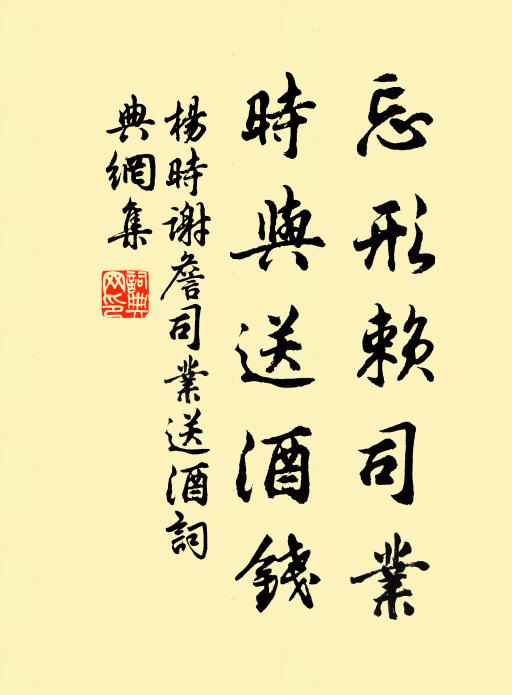 忘形賴司業
時與送酒錢
楊時謝詹司業送酒詞
典網集
詞典網印